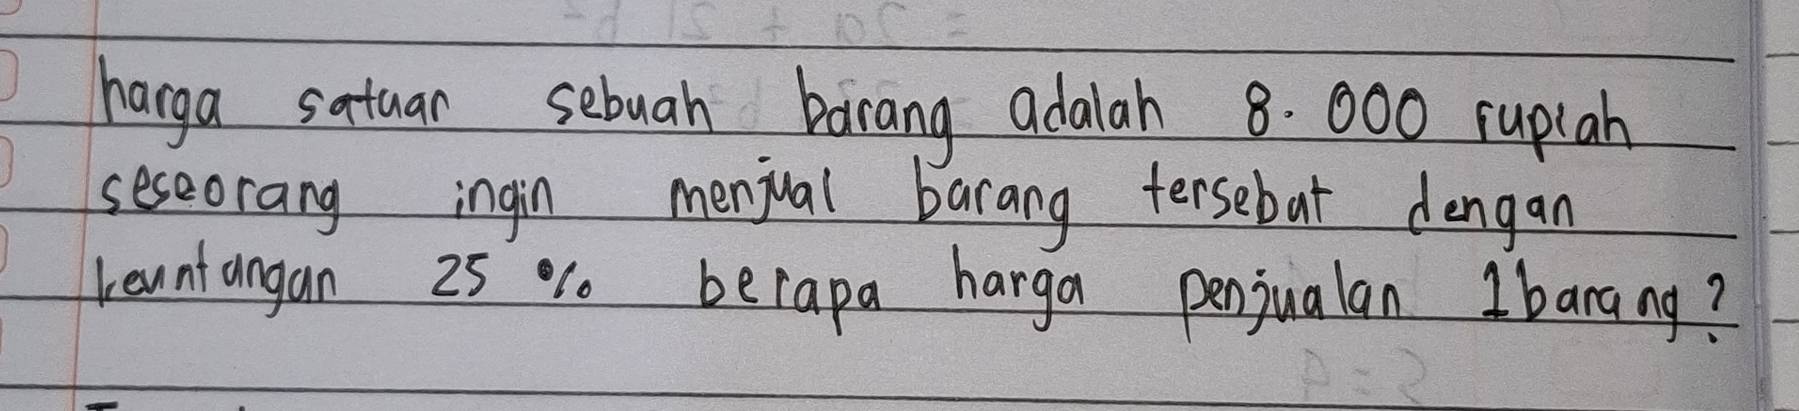 harga satuan sebuah barang adalah 8.000 rupiah
seseorang ingin menjual barang tersebut dengan
keuntungan 25 % berapa harga penjualan 1 barang?